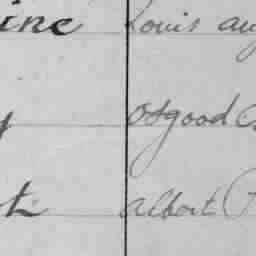 ine Louis aug
y Osgood
t Albert